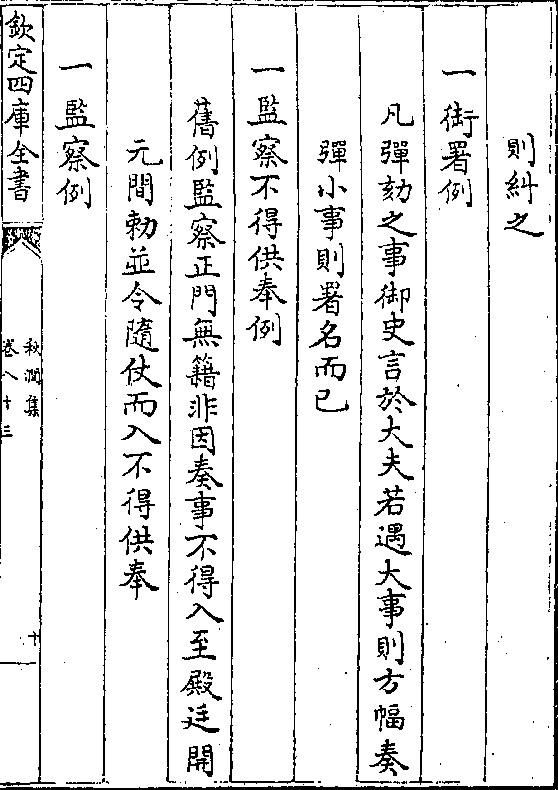 則糾之
一銜署例
凡彈劾之事御史言於大夫若遇大事則方幅奏
彈小事則署名而已
一監察不得供奉例
舊例監察正門無籍非因奏事不得入至殿廷開
元間勅並令隨仗而入不得供奉
一監察例
欽定四庫全書
秋澗集
卷八十三
十